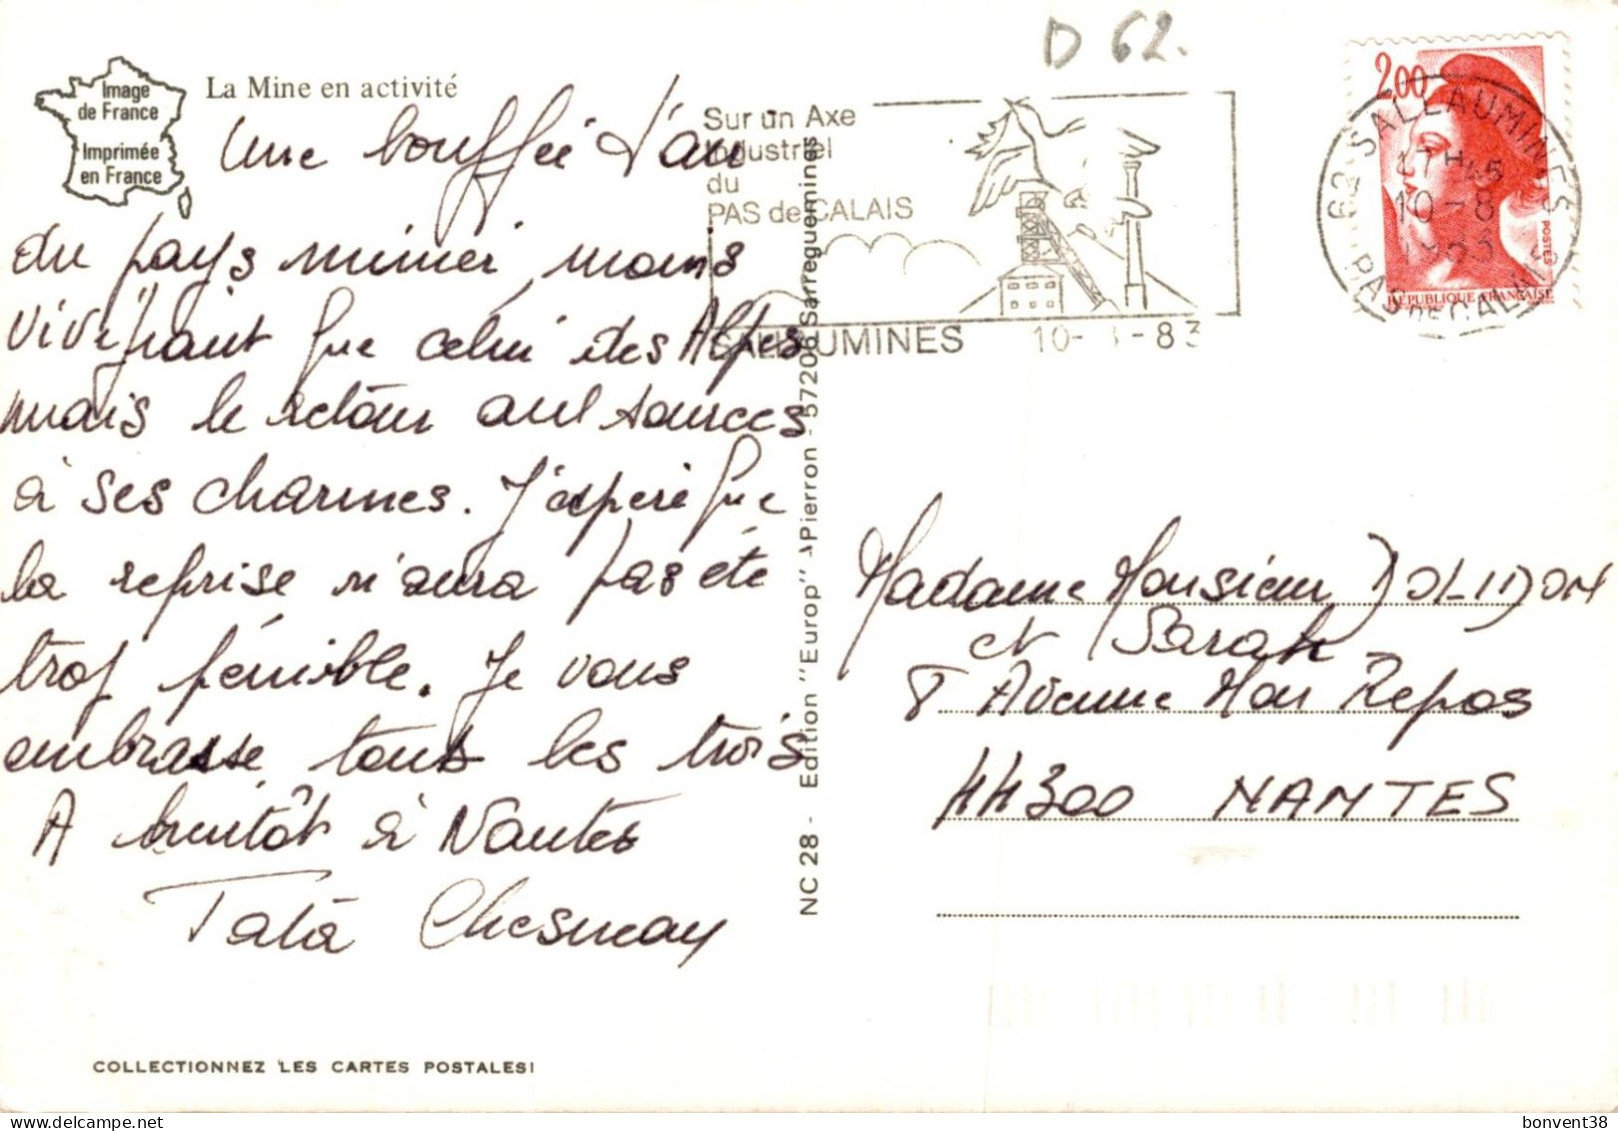 D 62.
Image
de France
Imprimée
en France
La Mine en activité
Une bouffée d'air
du pays minier, moins
vivifiant que celui des Alpes
mais le retour aux sources
a ses charmes. J'espère que
la reprise n'aura pas été
trop pénible. Je vous
embrasse tous les trois
A bientôt à Nantes
Tata
COLLECTIONNEZ LES CARTES POSTALES!
NC 28 - Edition "Europ" - Pierron - 57206 Sarreguemines
Sur un Axe
Industriel
du
PAS de CALAIS
SALLAUMINES 10-8-83
2,00
POSTES
REPUBLIQUE FRANÇAISE
62 SALLAUMINES
17 H 45
10-8
1983
PAS DE CALAIS
Madame Monsieur DOLIDON
et Sarah
8 Avenue Mon Repos
44300 NANTES
bonvent38